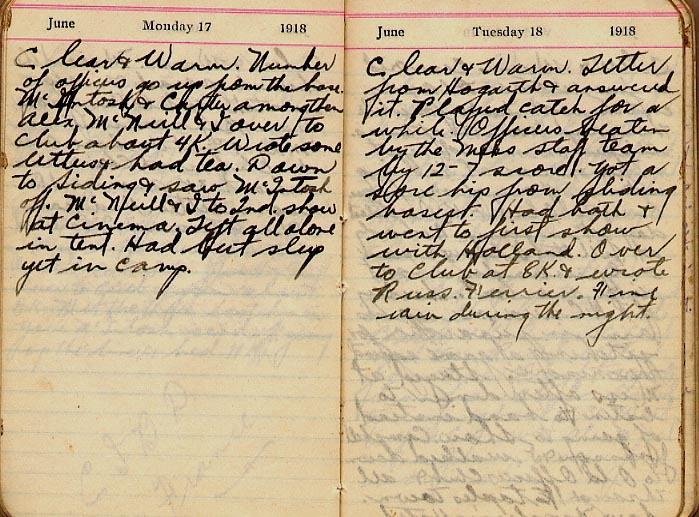 June Monday 17 1918
Clear & Warm. Number
of officers go up from the base.
McIntosh & Carter among them
Alex McNeill & I over to
Club about 4K. Wrote some
letters & had tea. Down
to Siding & saw McIntosh
off. McNeill & I to 2nd. show
at Cinema. Left all alone
in tent. Had best sleep
yet in camp.
C I B D
France
June Tuesday 18 1918
Clear & Warm. Letter
from Hogarth & answered
it. Played catch for a
while. Officers beaten
by the Mess staff team
by 12-7 score. Got a
sore hip from sliding
bases. Had bath &
went to first show
with Holland. Over
to Club at 8K & wrote
Russ. Ferrier. Fine
rain during the night.